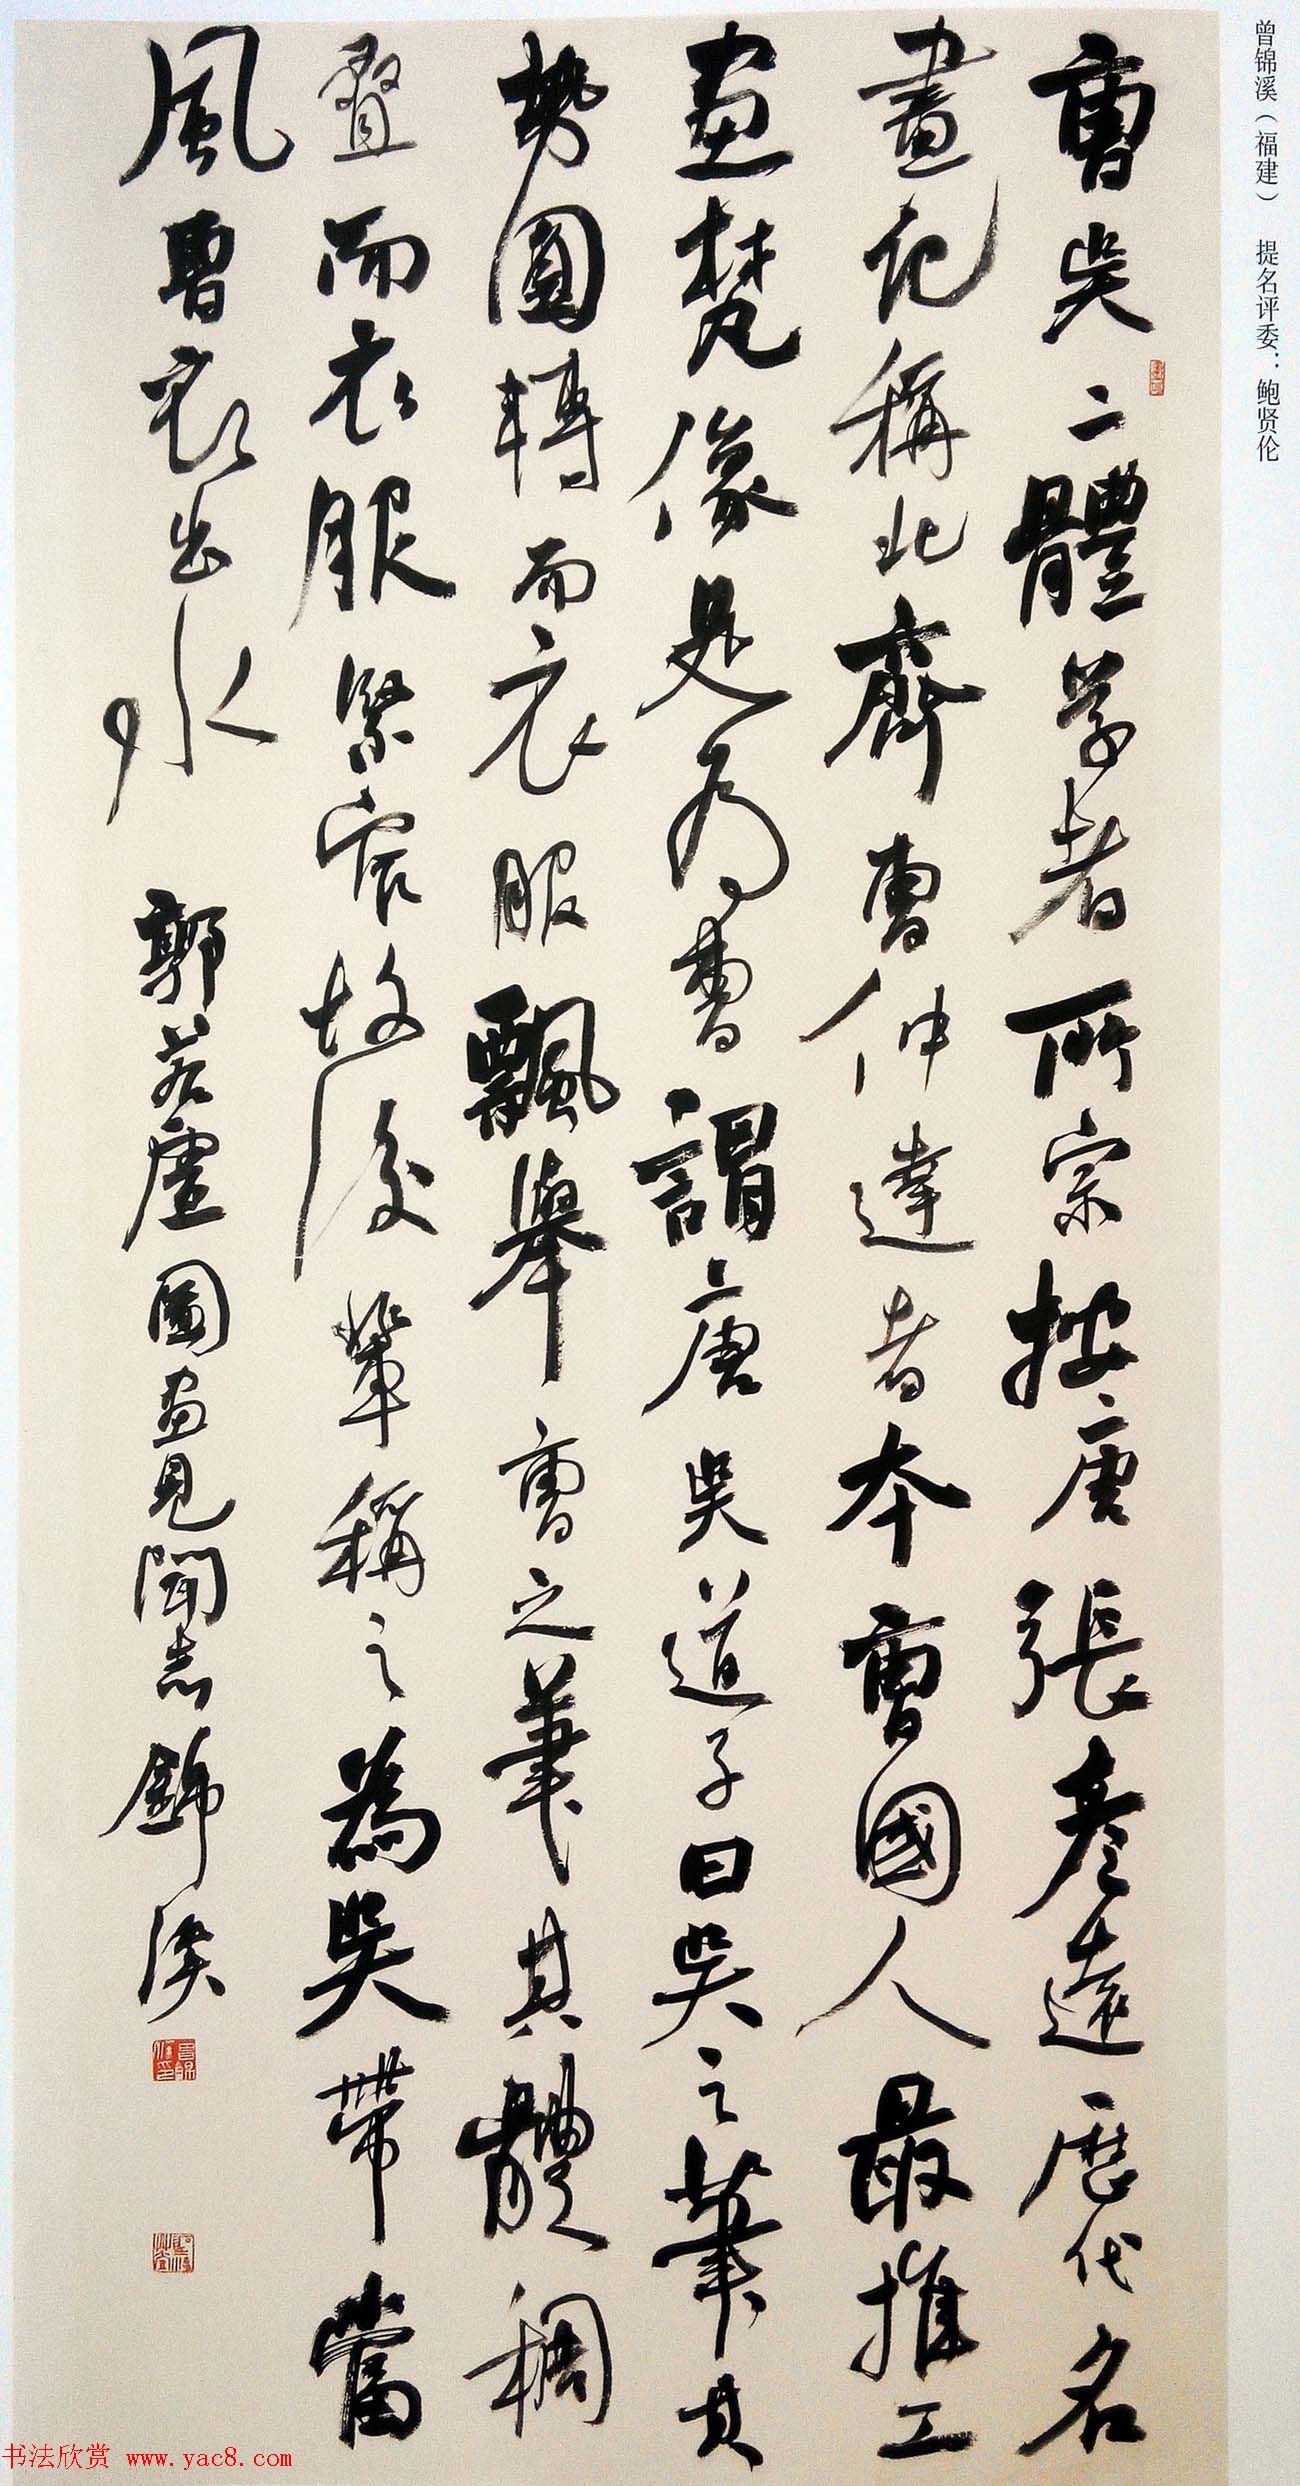 曹吴二體学者所宗按唐張彦遠歷代名
畫記稱北齊曹仲達者本曹國人最推工
画梵像是为曹謂唐吴道子曰吴之筆其
势圓轉而衣服飄舉曹之筆其體稠
疊而衣服緊窄故後輩稱之為吴带當
風曹衣出水
郭若虚圖画見聞志錦溪
曾锦溪（福建） 提名评委：鲍贤伦
书法欣赏 www.yac8.com